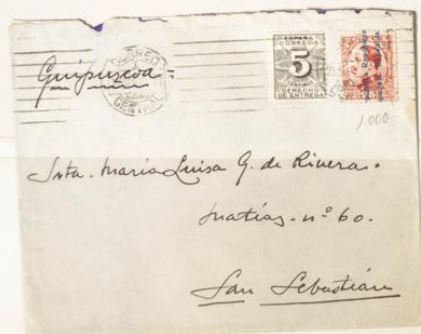 Guipuzcoa.
CORREO
CENTRAL
ESPAÑA
CORREOS
5
CENTIMOS
DERECHO
DE ENTREGA
República Española
1.000-
Srta. Maria Luisa G. de Rivera.
Matías - nº 60.
San Sebastián